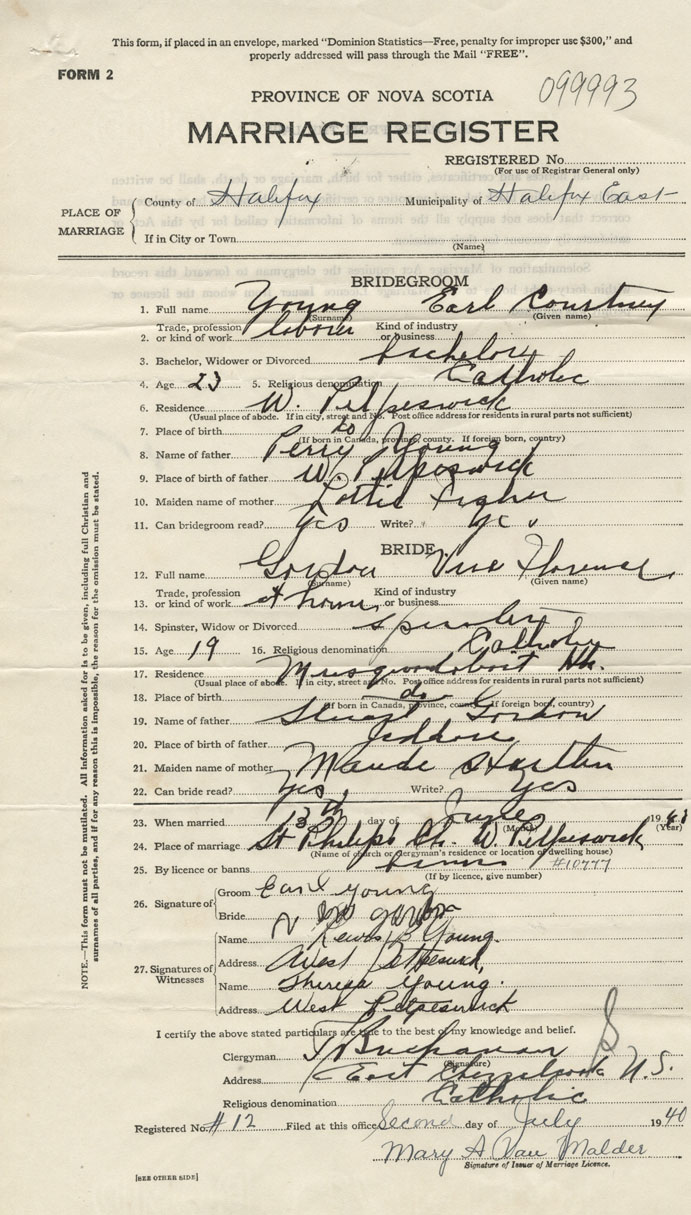 This form, if placed in an envelope, marked "Dominion Statistics—Free, penalty for improper use $300," and
properly addressed will pass through the Mail "FREE".
FORM 2
099993
PROVINCE OF NOVA SCOTIA
MARRIAGE REGISTER
REGISTERED No.
(For use of Registrar General only)
PLACE OF MARRIAGE
County of Halifax Municipality of Halifax East
If in City or Town
(Name)
BRIDEGROOM
1. Full name Young Earl Courtney
(Surname) (Given name)
2. Trade, profession or kind of work laborer Kind of industry or business
3. Bachelor, Widower or Divorced bachelor
4. Age 23 5. Religious denomination Catholic
6. Residence W. Petpeswick
(Usual place of abode. If in city, street and No. Post office address for residents in rural parts not sufficient)
7. Place of birth do
(If born in Canada, province, county. If foreign born, country)
8. Name of father Perry Young
9. Place of birth of father W. Petpeswick
10. Maiden name of mother Lottie
11. Can bridegroom read? yes Write?
BRIDE
12. Full name Gordon Florence
(Surname) (Given name)
13. Trade, profession or kind of work at home Kind of industry or business
14. Spinster, Widow or Divorced spinster
15. Age 19 16. Religious denomination Catholic
17. Residence Musquodoboit Hb.
(Usual place of abode. If in city, street and No. Post office address for residents in rural parts not sufficient)
18. Place of birth do
(If born in Canada, province, county. If foreign born, country)
19. Name of father Gordon
20. Place of birth of father Jeddore
21. Maiden name of mother Maude
22. Can bride read? yes Write? yes
23. When married 13th day of 19
(Month) (Year)
24. Place of marriage St Philip's Ch. W. Petpeswick
(Name of church or clergyman's residence or location of dwelling house)
25. By licence or banns banns #10777
(If by licence, give number)
26. Signature of
Groom Earl young
Bride
27. Signatures of Witnesses
Name Young.
Address West Petpeswick,
Name Theresa Young.
Address West Petpeswick
I certify the above stated particulars are true to the best of my knowledge and belief.
Clergyman Buchanan
(Signature)
Address East Chezzetcook N.S.
Religious denomination Catholic
Registered No. #12 Filed at this office Second day of July 1940
Mary A Van Malder
Signature of Issuer of Marriage Licence.
[SEE OTHER SIDE]
NOTE.—This form must not be mutilated. All information asked for is to be given, including full Christian and
surnames of all parties, and if for any reason this is impossible, the reason for the omission must be stated.